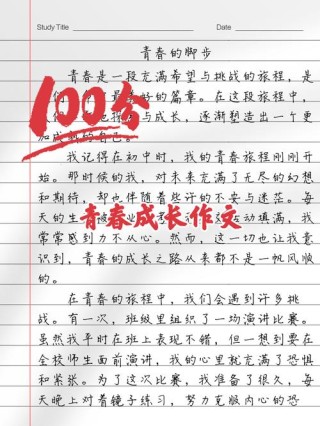 Study Title
Date
青春的脚步
青春是一段充满希望与挑战的旅程,是
们 好的篇章。在这段旅程中,
与成长,逐渐塑造出一个更
加 的自己。
100分
我记得在初中时,我的青春旅程刚刚开
始。那时候的我,对未来充满了无尽的幻想
和期待,却也伴随着些许的不安与迷茫。每
天的生 动填满,我
青春成长作文
常常感到力不从心。然而,这一切也让我意
识到,青春的成长之路从来都不是一帆风顺
的。
在青春的旅程中,我们会遇到许多挑
战。有一次,班级里组织了一场演讲比赛。
虽然我平时在班上表现不错,但一想到要在
全校师生面前演讲,我的心里就充满了恐惧
和紧张。为了这次比赛,我准备了很久,每
天晚上对着镜子练习,努力克服内心的恐